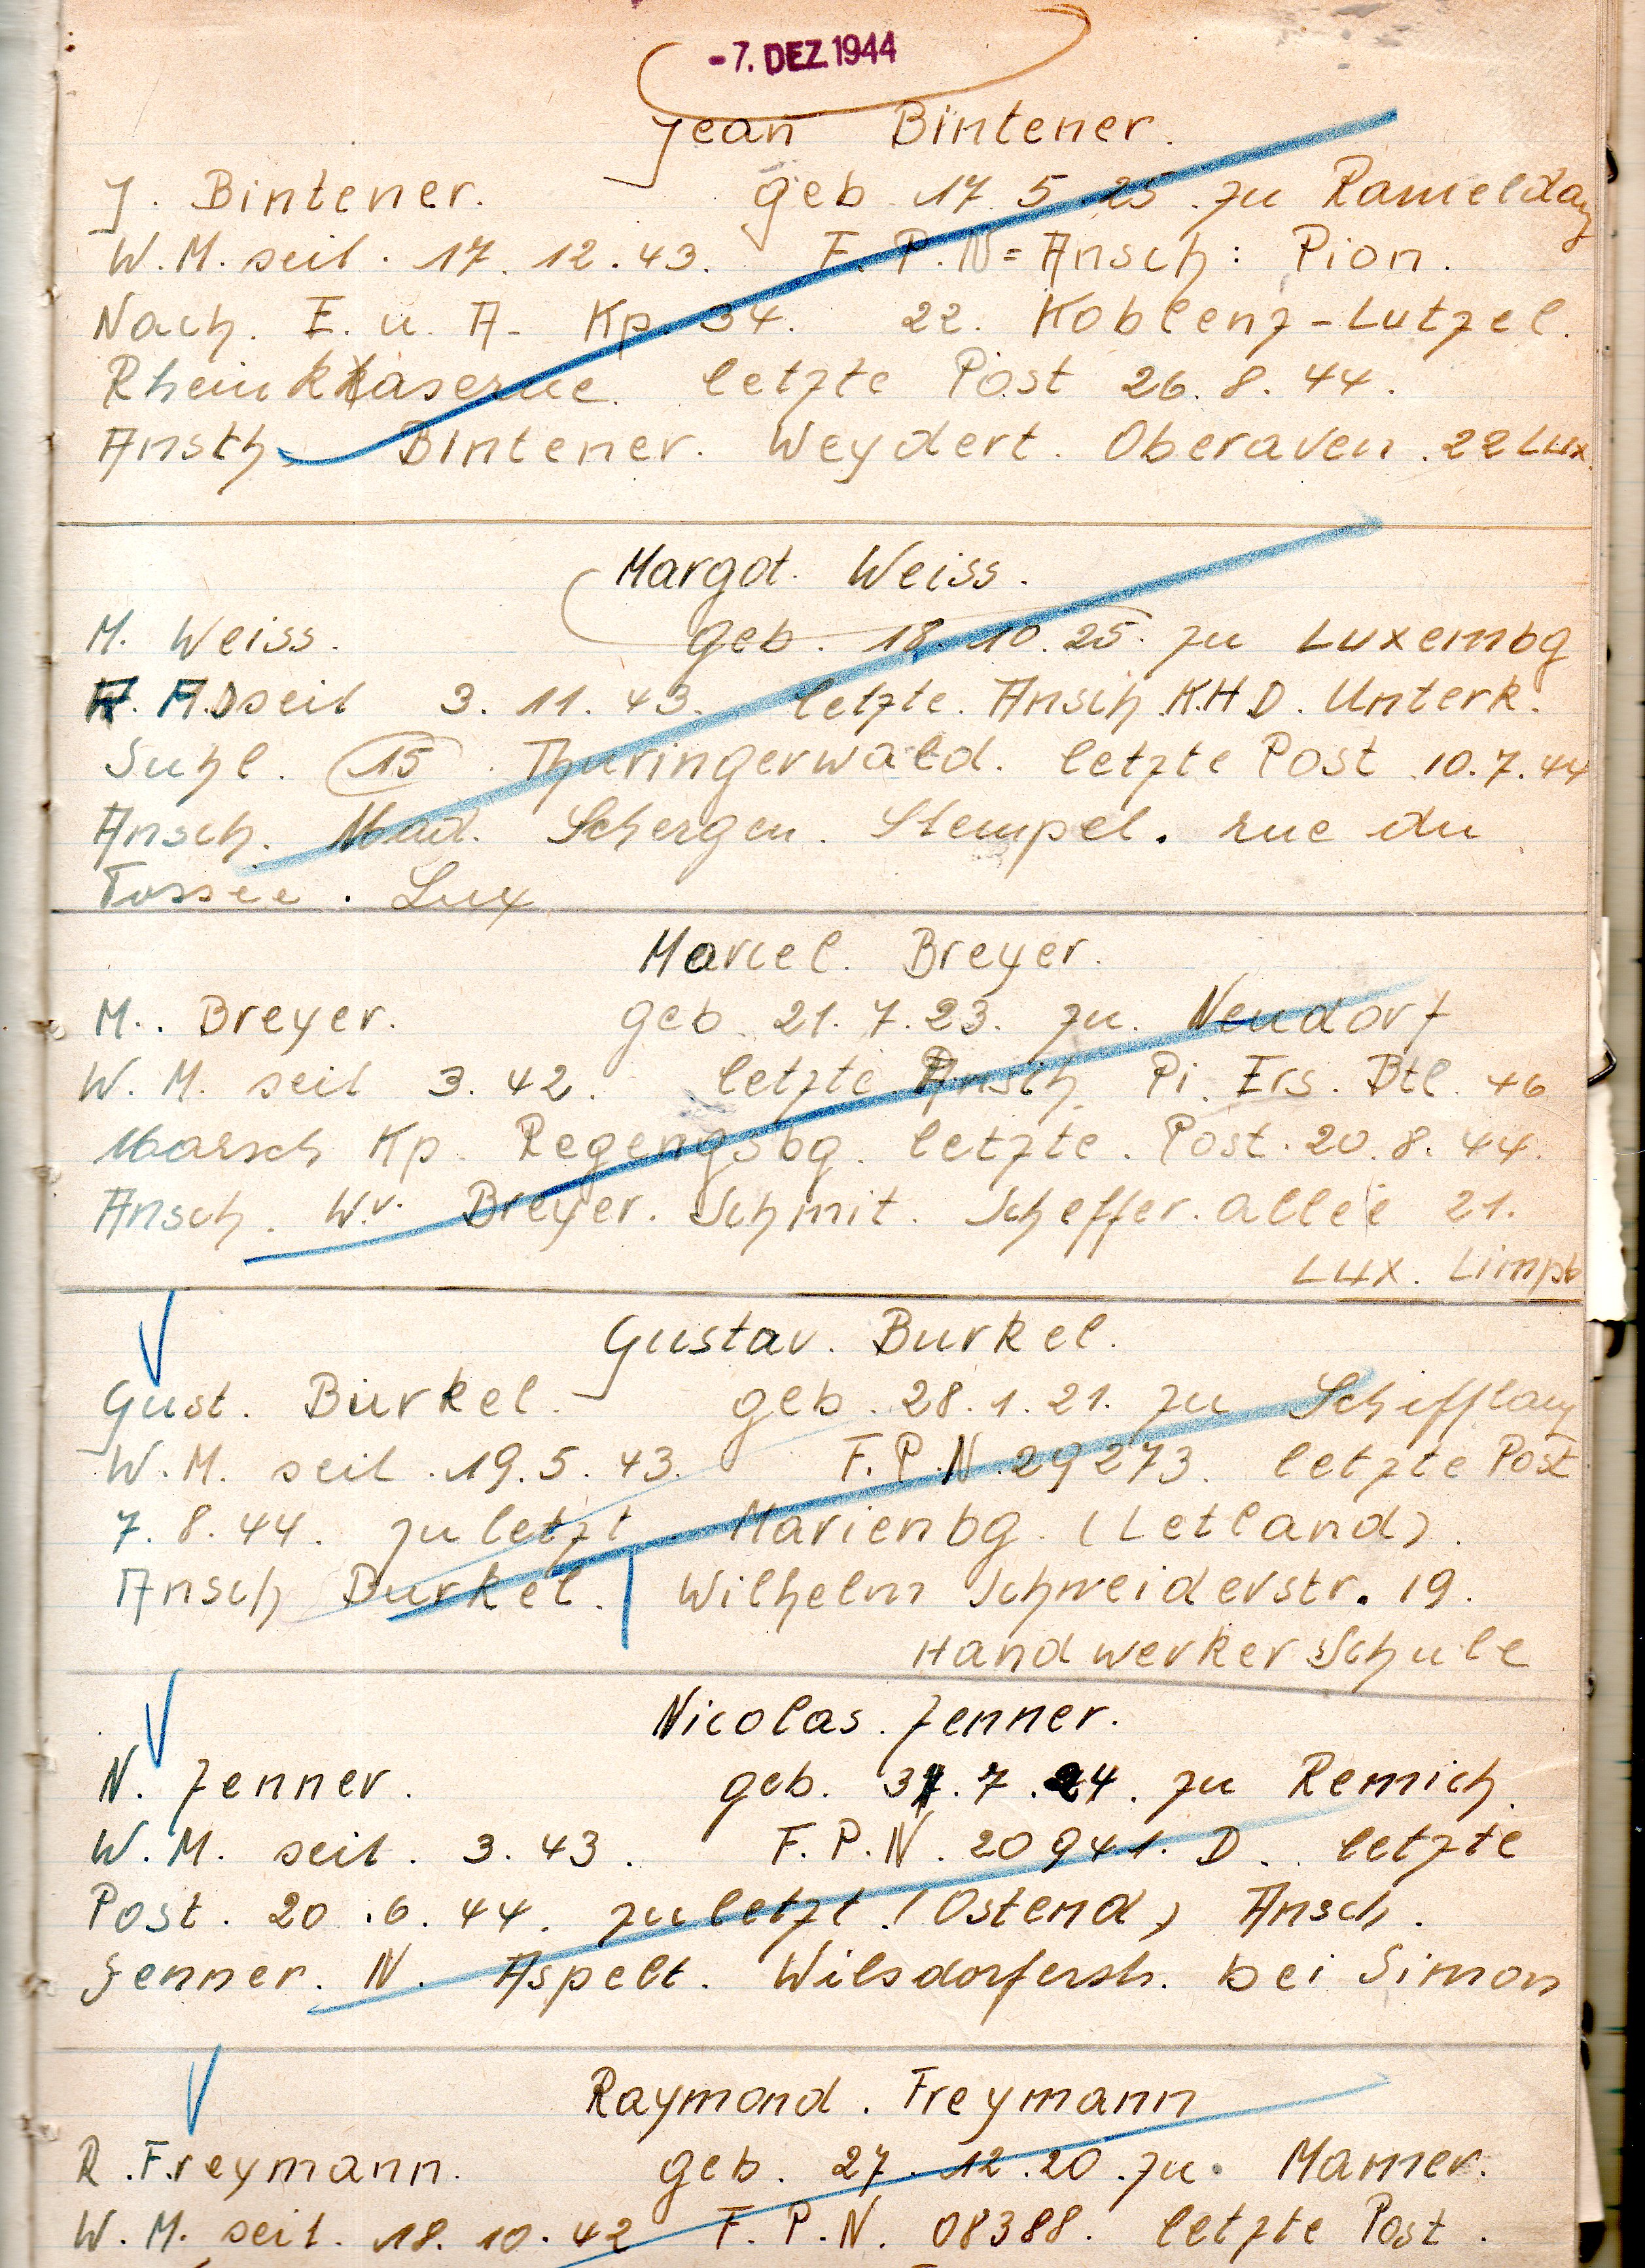 -7. DEZ. 1944
Jean Bintener.
J. Bintener. geb. 17. 5. 25. zu Rameldang
W.M. seit. 17. 12. 43. F.P.N = Ansch: Pion.
Nach. E. u. A- Kp 34. 22. Koblenz-Lutzel.
Rheinkaserne. letzte Post 26. 8. 44.
Ansch Bintener. Weydert. Oberaven. 22 Lux.
Margot. Weiss.
M. Weiss. geb. 18. 10. 25. zu Luxembg
A.D seit 3. 11. 43. letzte. Ansch. K.H.D. Unterk.
Suhl. 15. Thuringerwald. letzte Post 10.7.44
Ansch. Mad. Schergen. Stempel. rue du
Fossee. Lux
Marcel. Breyer.
M.. Breyer. geb. 21. 7. 23. zu. Neudorf
W. M. seit 3. 42. letzte Ansch. Pi. Ers. Btl. 46
Marsch Kp. Regengsbg. letzte. Post. 20. 8. 44.
Ansch. Wv. Breyer. Schmit. Scheffer. allee 21.
Lux. Limpb
Gustav. Burkel.
Gust. Burkel. geb. 28. 1. 21. zu Schifflang
W.M. seit. 19. 5. 43. F.P.N. 29273. letzte Post
7. 8. 44. zuletzt Marienbg. (Letland).
Ansch Burkel. Wilhelm Schneiderstr. 19.
Handwerker Schule
Nicolas. Jenner.
N. Jenner. geb. 31. 7. 24. zu Remich.
W. M. seit. 3. 43. F.P.N. 20941. D. letzte
Post. 20. 6. 44. zuletzt. (Ostend) Ansch.
Jenner. N. Aspelt. Wilsdorferstr. bei Simon
Raymond. Freymann
R. Freymann. geb. 27. 12. 20. zu. Mamer.
W. M. seit. 18. 10. 42 F. P. N. 08388. letzte Post.